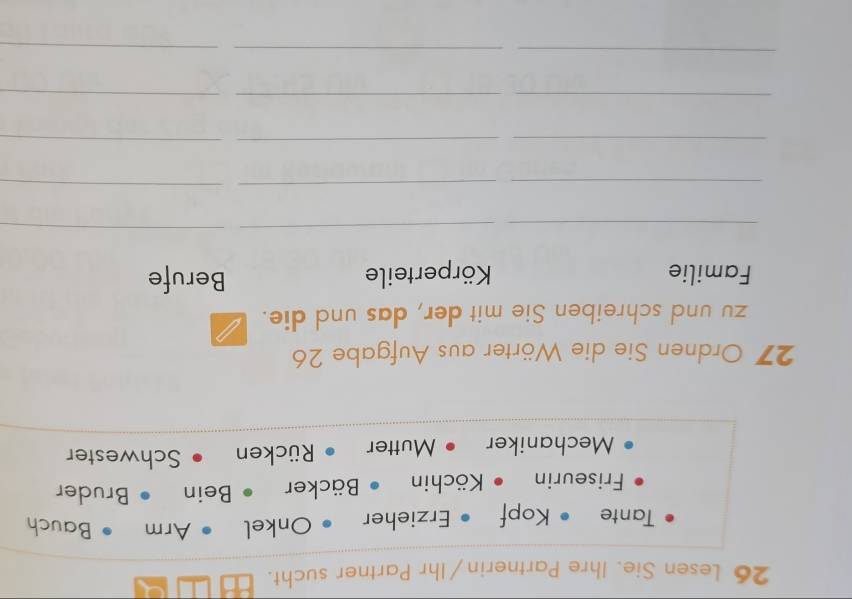 26 Lesen Sie. Ihre Partnerin / Ihr Partner sucht.
• Tante • Kopf • Erzieher • Onkel • Arm • Bauch
• Friseurin • Köchin • Bäcker • Bein • Bruder
• Mechaniker • Mutter • Rücken • Schwester
27 Ordnen Sie die Wörter aus Aufgabe 26
zu und schreiben Sie mit der, das und die.
Familie Körperteile Berufe